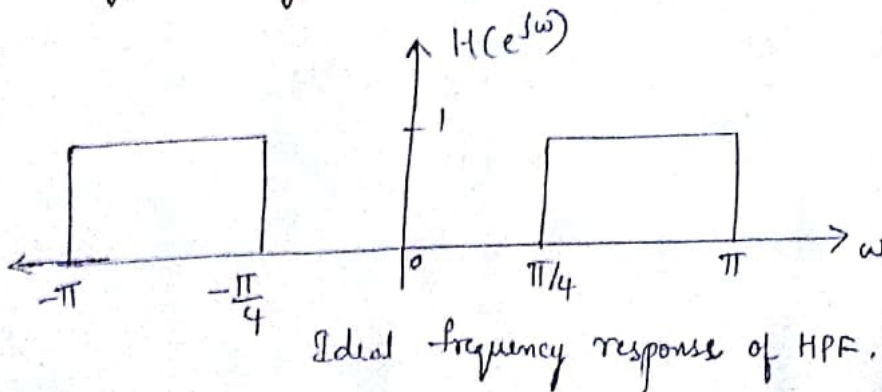 H(e^{jω})
1
-π
-π/4
0
π/4
π
ω
Ideal frequency response of HPF.